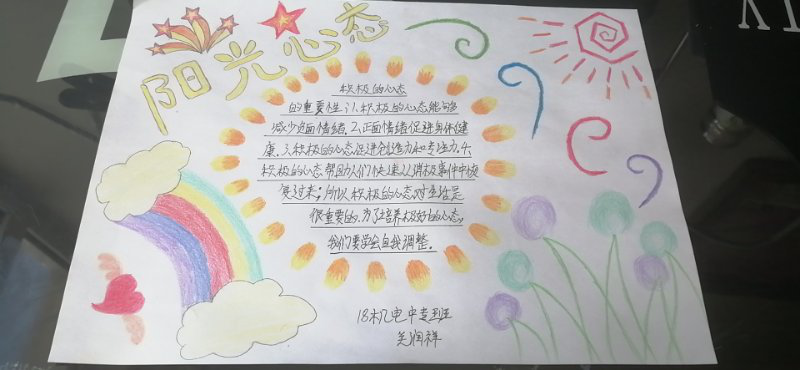 阳光心态
积极的心态
的重要性:1.积极的心态能够
减少负面情绪.2.正面情绪促进身体健
康.3.积极的心态促进创造力和专注力.4.
积极的心态帮助人们快速从消极事件中恢
复过来;所以积极的心态对生活是
很重要的.为了培养极好的心态,
我们要学会自我调整.
18机电中专班
关润祥